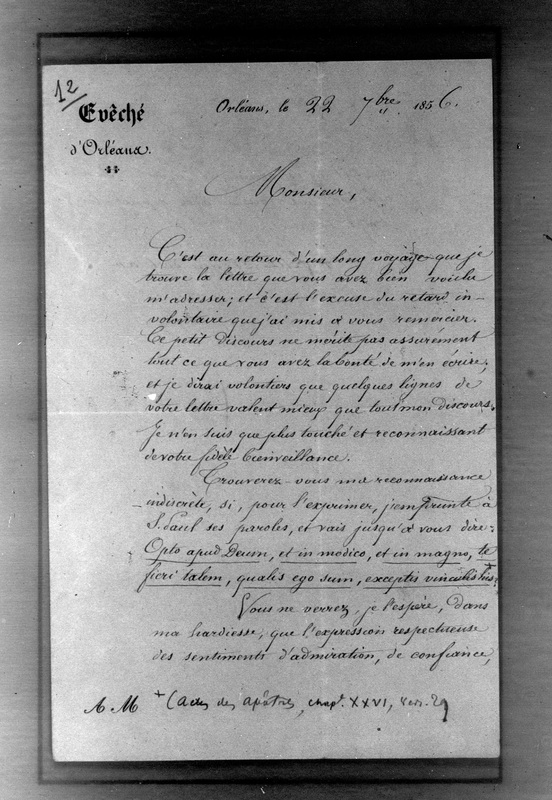 12/
Evêché
d'Orléans.
Orléans, le 22 7bre 1856.
Monsieur,
C'est au retour d'un long voyage que je
trouve la lettre que vous avez bien voulu
m'adresser; et c'est l'excuse du retard in-
volontaire que j'ai mis à vous remercier.
Ce petit discours ne mérite pas assurément
tout ce que vous avez la bonté de m'en écrire,
et je dirai volontiers que quelques lignes de
votre lettre valent mieux que tout mon discours.
Je n'en suis que plus touché et reconnaissant
de votre fidèle bienveillance.
Trouverez-vous ma reconnaissance
indiscrète, si, pour l'exprimer, j'emprunte à
S. Paul ses paroles, et vais jusqu'à vous dire:
Opto apud Deum, et in modico, et in magno, te
fieri talem, qualis ego sum, exceptis vinculis his.+
Vous ne verrez, je l'espère, dans
ma hardiesse, que l'expression respectueuse
des sentiments d'admiration, de confiance,
A. M + (Actes des Apôtres, chapt. XXVI, vers. 29